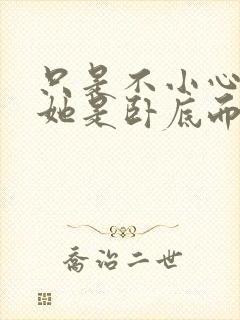 只是不小心
她是卧底而
乔治二世